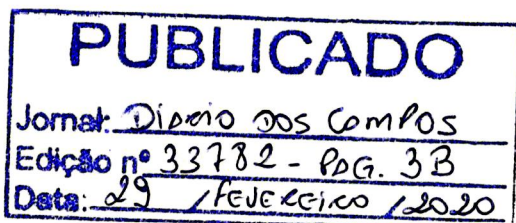 PUBLICADO
Jornal: Diário dos Campos
Edição nº 33782 - PAG. 3B
Data: 29 / FEVEREIRO / 2020